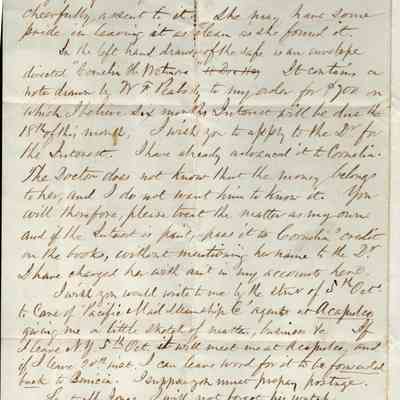 cheerfully assent to it. She may have some
pride in leaving it as clean as she found it.
In the left hand drawer of the safe is an envelope
directed "Cornelia W. It contains a
note drawn by W F Peabody to my order for $700 on
which I believe six months Interest will be due the
18th of this month. I wish you to apply to the Dr for
the Interest. I have already advanced it to Cornelia.
The Doctor does not know that the money belongs
to her, and I do not want him to know it. You
will therefore, please treat the matter as my own
and if the Interest is paid, pass it to Cornelia's credit
on the books, without mentioning her name to the Dr.
I have charged her with am't in my accounts here.
I wish you would write to me by the str of 5th Oct
to Care of Pacific Mail Steamship Co agents at Acapulco,
giving me a little sketch of matters, business &c If
I leave NY 5th Oct it will meet me at Acapulco, and
if I leave 20th inst. I can leave word for it to be forwarded
back to Benicia. I suppose you must prepay postage.
I will not forget her watch